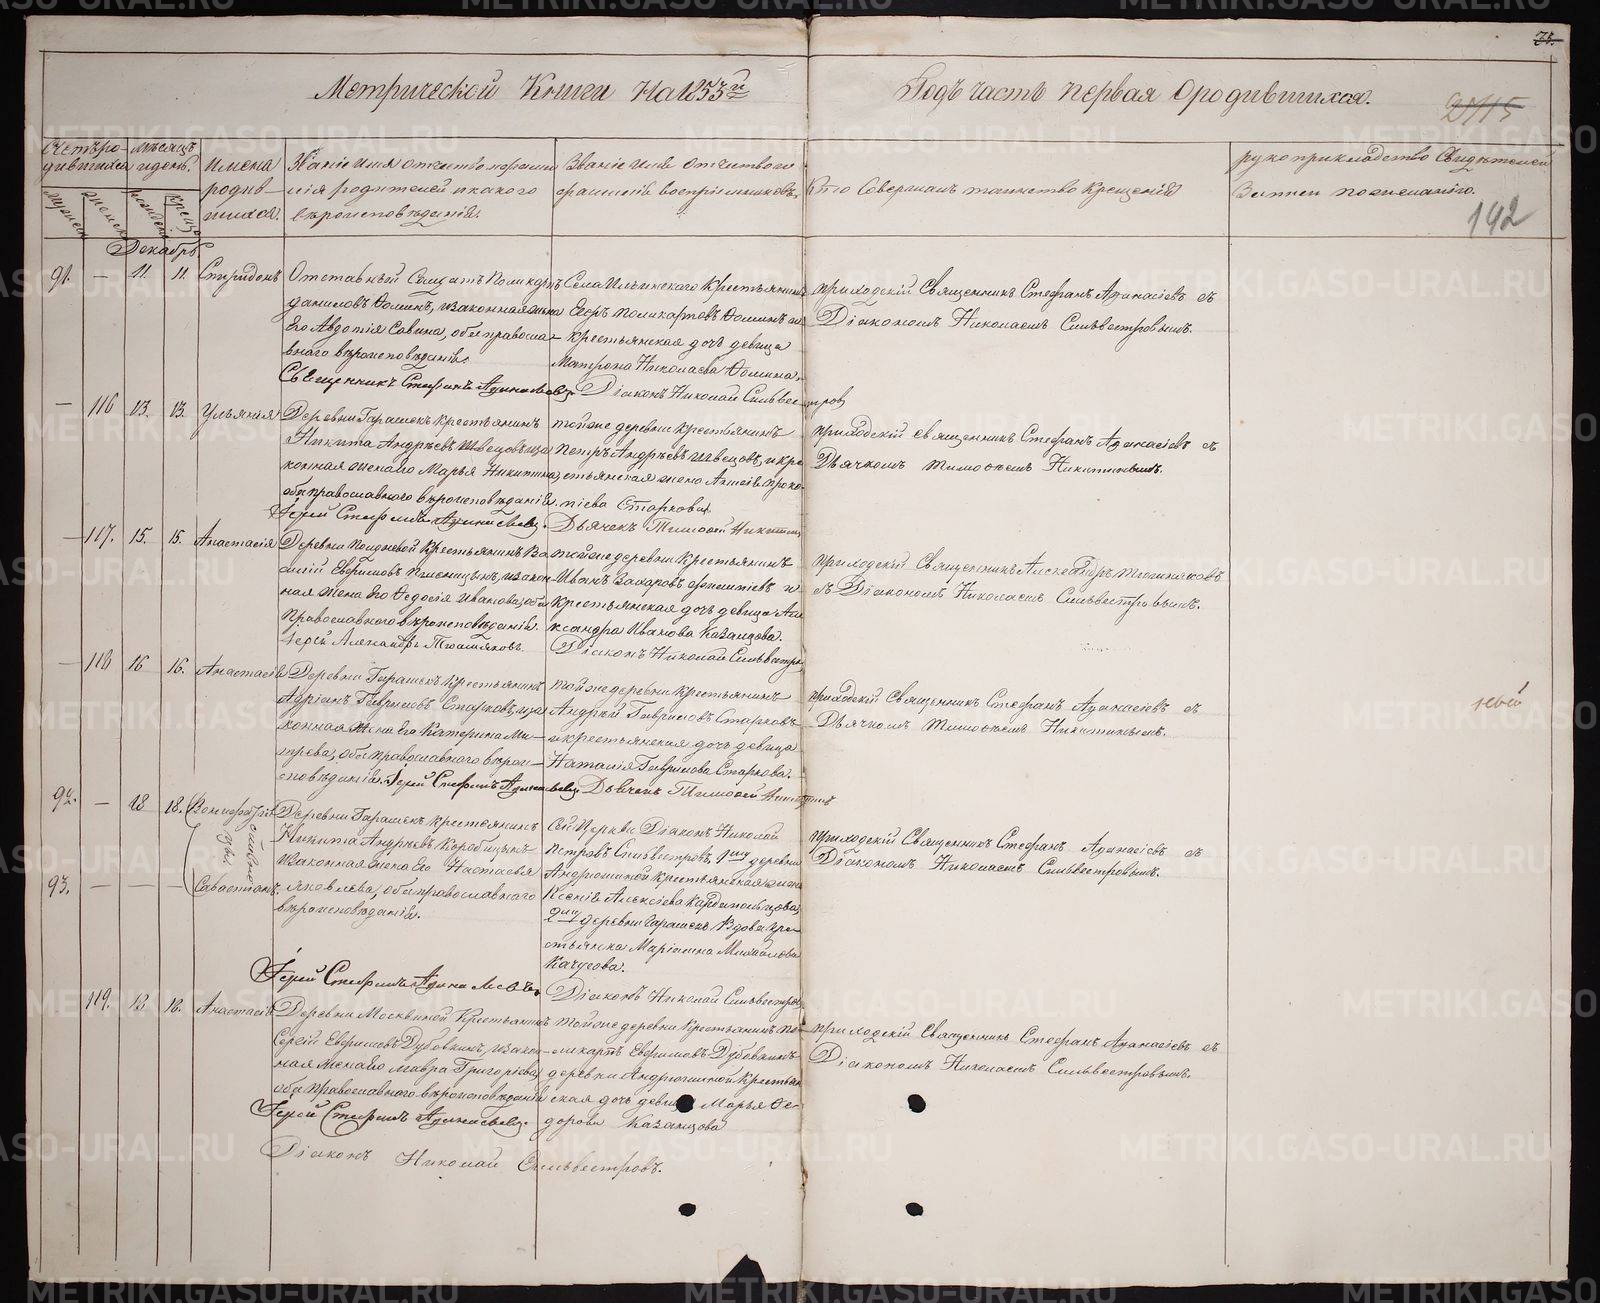 Метрической Книги На 1853й Годъ часть первая Ородившихся.
142
Счетъ ро-
дившихся
Мѣсяцъ
и день.
Имена
родив-
шихся.
Званіе имя отчество
родителей и какого
вѣроисповѣданія.
Званіе имя отчество и
фамилія воспріемниковъ.
Кто Совершалъ таинство Крещенія
рукоприкладство Свидѣтелей
Декабрь
91. — 11. 11. Спиридонъ
Отставный Солдатъ Поликарпъ
Даниловъ Ѳоминъ, и законная жена
Его Авдотія Савина, оба правосла-
внаго вѣроисповѣданія.
Священникъ Стефанъ Аѳанасьевъ
Села Ильинскаго Крестьянинъ
Егоръ Поликарповъ Ѳоминъ и
крестьянская дочь девица
Матрона Николаева Ѳомина.
Діаконъ Николай Сильвестровъ
приходскій Священникъ Стефанъ Аѳанасіевъ съ
Діакономъ Николаемъ Сильвестровымъ.
— 116 13. 13. Ульянія
Деревни Гарашекъ крестьянинъ
Никита Андреевъ Швецовъ, и за-
конная жена его Марья Никитина,
оба православнаго вѣроисповѣданія.
Іерей Стефанъ Аѳанасьевъ.
тойже деревни крестьянинъ
Петръ Андреевъ Швецовъ, и кре-
стьянская жена Анисія Проко-
піева Старкова.
Дьячекъ Тимоѳей Никитинъ
приходскій священникъ Стефанъ Аѳанасіевъ съ
Дьячкомъ Тимоѳеемъ Никитинымъ.
— 117. 15. 15. Анастасія
Крестьянинъ Ва-
силій Ефимовъ Пшеницынъ, и закон-
ная жена его Ѳедосія Иванова, оба
Православнаго вѣроисповѣданія.
Іерей Александръ
тойже деревни Крестьянинъ
Иванъ Захаровъ и
Крестьянская дочь девица Але-
ксандра Иванова Казанцова.
Діаконъ Николай Сильвестровъ
приходскій Священникъ Александръ
съ Діакономъ Николаемъ Сильвестровымъ.
— 118 16 16. Анастасія
Деревни Гарашекъ Крестьянинъ
Адріанъ Гавриловъ Старковъ, и за-
конная жена Его Катерина Ми-
трева, оба православнаго вѣрои-
сповѣданія. Іерей Стефанъ Аѳанасьевъ
тойже деревни крестьянинъ
Андрей Гавриловъ Старковъ
и крестьянская дочь девица
Наталія Гаврилова Старкова.
Дьячекъ Тимоѳей Никитинъ
приходскій Священникъ Стефанъ Аѳанасіевъ съ
Дьячкомъ Тимоѳеемъ Никитинымъ.
92. — 18 18. Вонифатій
93. — — — Савастіанъ
Деревни Гарашекъ крестьянинъ
Никита Андреевъ Коробицынъ
и законная жена Его Настасья
Яковлева, оба православнаго
вѣроисповѣданія.
Іерей Стефанъ Аѳанасьевъ.
Сей Церкви Діаконъ Николай
Петровъ Сильвестровъ, деревни
Андрюшиной крестьянская жена
Ксенія Алексіева
деревни Гарашекъ Вдова кре-
стьянка Маріанна Михайлова
Качусова.
Діаконъ Николай Сильвестровъ
приходскій Священникъ Стефанъ Аѳанасіевъ съ
Діакономъ Николаемъ Сильвестровымъ.
119. 18 18. Анастасія
Деревни Москвиной Крестьянинъ
Сергій Ефимовъ Дубовкинъ, и закон-
ная жена его Мавра Григорьева,
оба Православнаго вѣроисповѣданія
Іерей Стефанъ Аѳанасьевъ.
Діаконъ Николай Сильвестровъ.
тойже деревни Крестьянинъ По-
ликарпъ Ефимовъ Дубовкинъ
деревни Андрюшиной крестьян
ская дочь девица Марья Ѳе-
дорова Казанцова
приходскій Священникъ Стефанъ Аѳанасіевъ съ
Діакономъ Николаемъ Сильвестровымъ.
METRIKI.GASO-URAL.RU